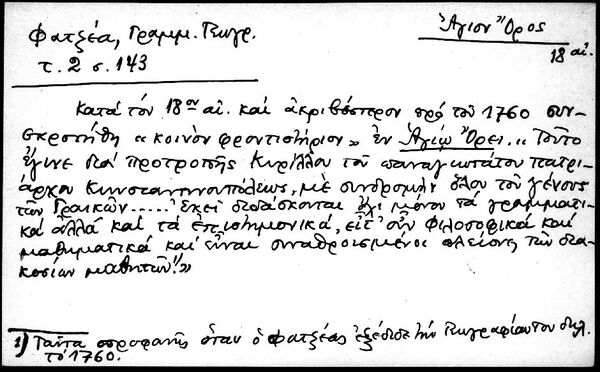 Φατζέα, Γραμμ. Γεωγρ.
τ. 2 σ. 143
Ἅγιον Ὄρος
18 αἰ.
Κατά τόν 18ον αἰ. καί ἀκριβέστερον πρό τοῦ 1760 συν-
εκροτήθη «κοινὸν φροντιστήριον» ἐν Ἁγίῳ Ὄρει. «Τοῦτο
ἔγινε διά προτροπῆς Κυρίλλου τοῦ παναγιωτάτου πατρι-
άρχου Κωνσταντινουπόλεως, μὲ συνδρομήν ὅλου τοῦ γένους
τῶν Γραικῶν..... Ἐκεῖ διδάσκονται ὄχι μόνον τά γραμματι-
κά ἀλλά καί τά ἐπιστημονικά, εἴτ' οὖν φιλοσοφικά καί
μαθηματικά καί εἶναι συναθροισμένοι πλείονες τῶν δια-
κοσίων μαθητῶν¹⁾»
1) Ταῦτα προφανῶς ὅταν ὁ Φατζέας ἐξέδιδε τήν Γεωγραφίαν του δηλ.
τό 1760.